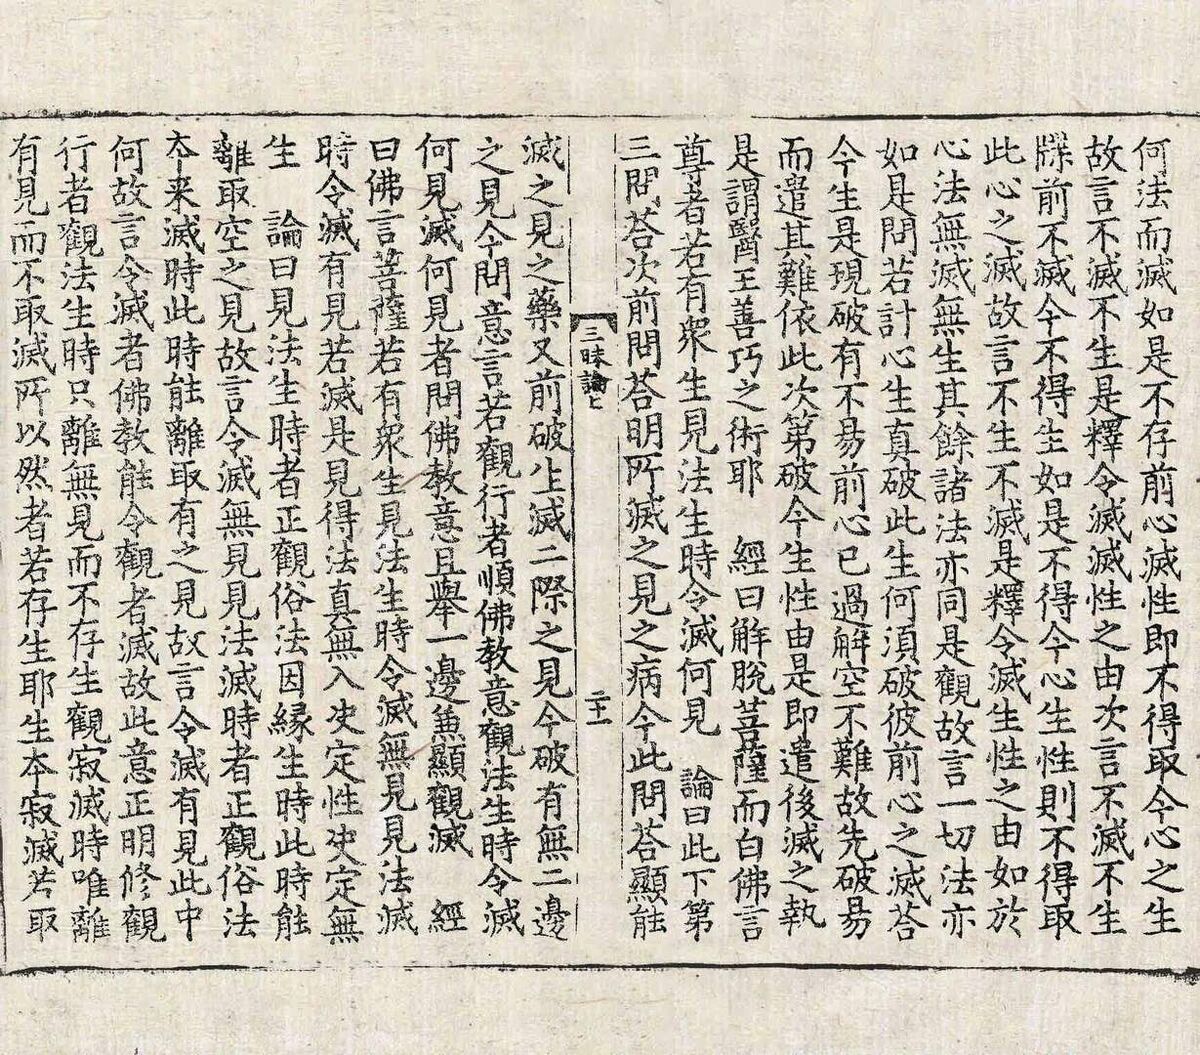 何法而滅如是不存前心滅性即不得取今心之生
故言不滅不生是釋令滅滅性之由次言不滅不生
牒前不滅今不得生如是不得今心生性則不得取
此心之滅故言不生不滅是釋令滅生性之由如於
心法無滅無生其餘諸法亦同是觀故言一切法亦
如是問若計心生真破此生何須破彼前心之滅荅
今生是現破有不易前心已過解空不難故先破易
而遣其難依此次第破今生性由是即遣後滅之執
是謂醫王善巧之術耶　經曰解脫菩薩而白佛言
尊者若有衆生見法生時令滅何見　論曰此下第
三問荅次前問荅明所滅之見之病今此問荅顯能
三昧論上
二十一
滅之見之藥又前破生滅二際之見今破有無二邊
之見今問意言若觀行者順佛教意觀法生時令滅
何見滅何見者問佛教意且舉一邊兼顯觀滅　經
曰佛言菩薩若有衆生見法生時令滅無見見法滅
時令滅有見若滅是見得法真無入决定性决定無
生　論曰見法生時者正觀俗法因緣生時此時能
離取空之見故言令滅無見見法滅時者正觀俗法
夲来滅時此時能離取有之見故言令滅有見此中
何故言令滅者佛教能令觀者滅故此意正明修觀
行者觀法生時只離無見而不存生觀寂滅時唯離
有見而不取滅所以然者若存生耶生夲寂滅若取